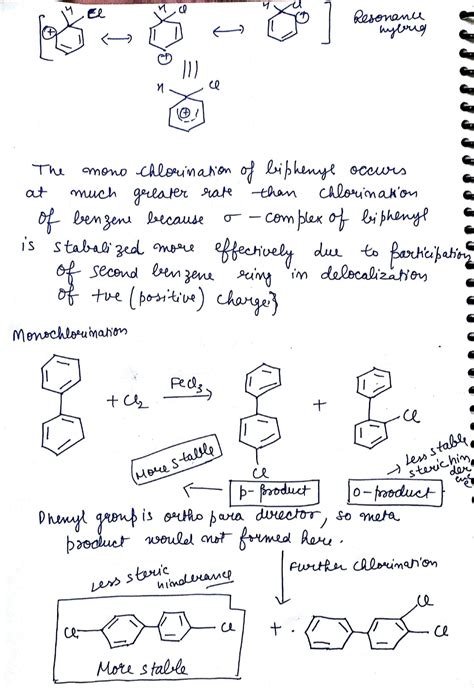 H Cl H Cl H Cl
[ ⊕ ↔ ⊕ ↔ ⊕ ] Resonance
hybrid
|||
H Cl
⊕
The mono chlorination of biphenyl occurs
at much greater rate than chlorination
of benzene because σ - complex of biphenyl
is stabalized more effectively due to participation
of second benzene ring in delocalization
of +ve (positive) charge}
Monochlorination
+ Cl2 FeCl3 → + Cl
Cl
More stable
→ Less stable
steric hin
der
ance
← p-product o-product
Phenyl group is ortho para director, so meta
product would not formed here.
Further Chlorination
Less steric
hinderance
Cl
Cl Cl + Cl
More stable